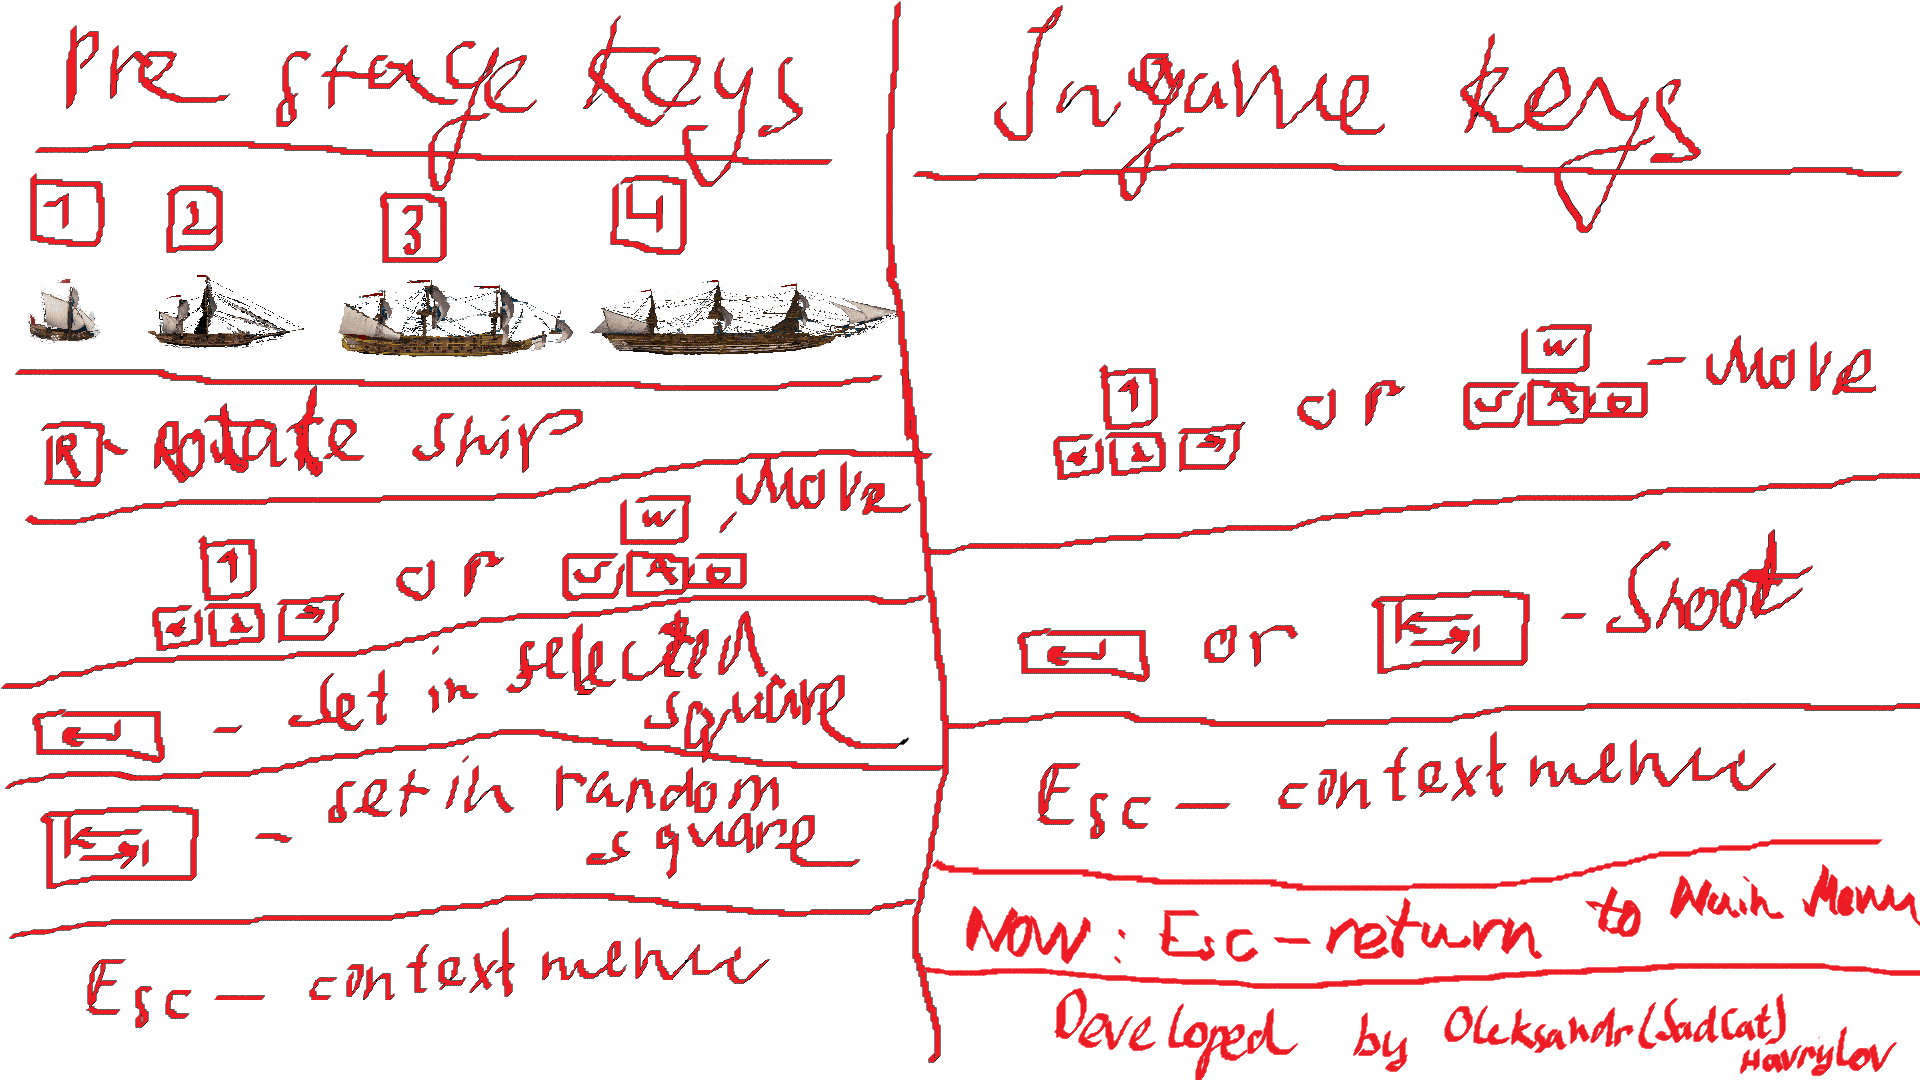 Pre stage keys
1 2 3 4
R - Rotate ship
↑ or W - Move
← ↓ → S A D
↵ - Set in selected
square
↹ - set in random
square
Esc - context menu
Ingame keys
↑ or W - Move
← ↓ → S A D
↵ or ↹ - Shoot
Esc - context menu
Now: Esc - return to Main Menu
Developed by Oleksandr (SadCat)
Havrylov